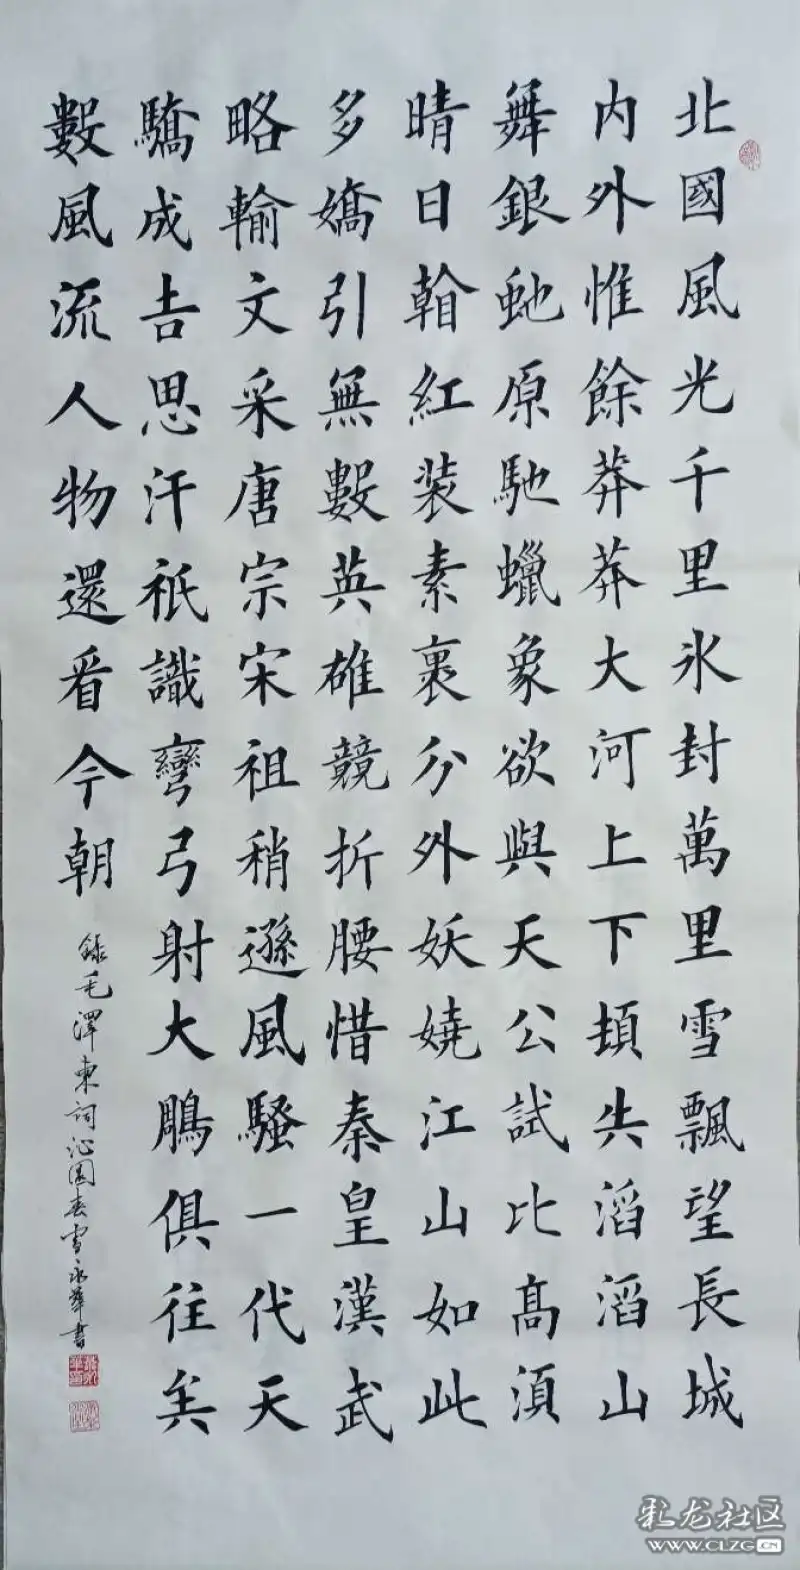 北國風光千里氷封萬里雪飄望長城
内外惟餘莽莽大河上下頓失滔滔山
舞銀虵原馳蠟象欲與天公試比高須
晴日看紅装素裹分外妖嬈江山如此
多嬌引無數英雄競折腰惜秦皇漢武
略輸文采唐宗宋祖稍遜風騷一代天
驕成吉思汗祇識彎弓射大鵰俱往矣
數風流人物還看今朝
録毛澤東詞沁園春雪永華書
彩龙社区
WWW.CLZG.CN